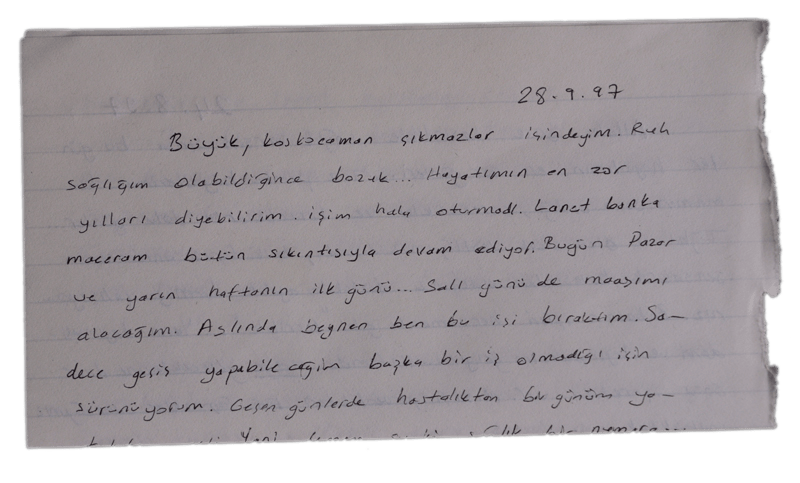 28.9.97
Büyük, koskocaman çıkmazlar içindeyim. Ruh
sağlığım olabildiğince bozuk... Hayatımın en zor
yılları diyebilirim. işim hala oturmadı. Lanet banka
maceram bütün sıkıntısıyla devam ediyor. Bugün Pazar
ve yarın haftanın ilk günü... Salı günü de maaşımı
alacağım. Aslında beynen ben bu işi bıraktım. Sa-
dece geçiş yapabileceğim başka bir iş olmadığı için
sürünüyorum. Geçen günlerde hastalıktan bir günüm ya-
Yani bir numara...